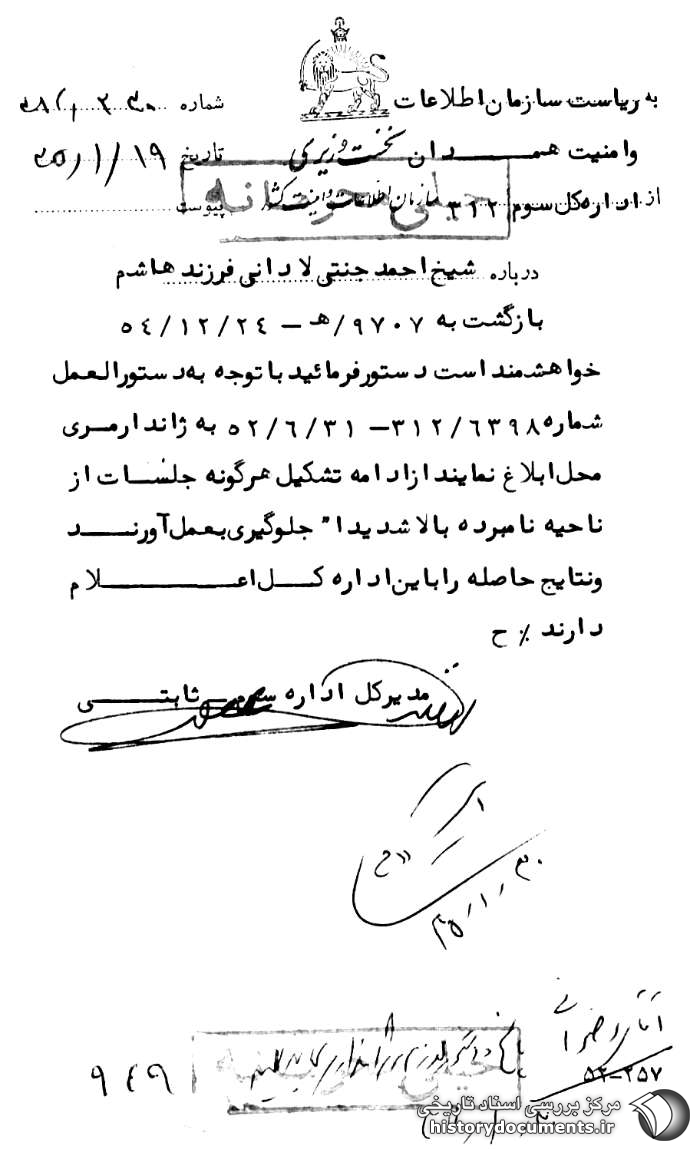 به ریاست سازمان اطلاعات
شماره
وامنیت همدان
نخست وزیری
تاریخ ۳۵/۱/۱۹
سازمان اطلاعات و امنیت کشور
خیلی محرمانه
از اداره کل سوم ۳۱۲
پیوست
درباره شیخ احمد جنتی لادانی فرزند هاشم
بازگشت به ۹۷۰۷/هـ - ۵۴/۱۲/۲۴
خواهشمند است دستور فرمائید با توجه به دستورالعمل
شماره ۳۱۲/۶۳۹۸ - ۵۲/۶/۳۱ به ژاندارمری
محل ابلاغ نمایند از ادامه تشکیل هرگونه جلسات از
ناحیه نامبرده بالا شدیدا" جلوگیری بعمل آورند
ونتایج حاصله را باین اداره کل اعلام
دارند ٪ ح
مدیرکل اداره سوم - ثابتی
۳۵/۱/۳۰
۵۲-۲۵۷
۹۴۹
خیلی محرمانه
مرکز بررسی اسناد تاریخی
historydocuments.ir